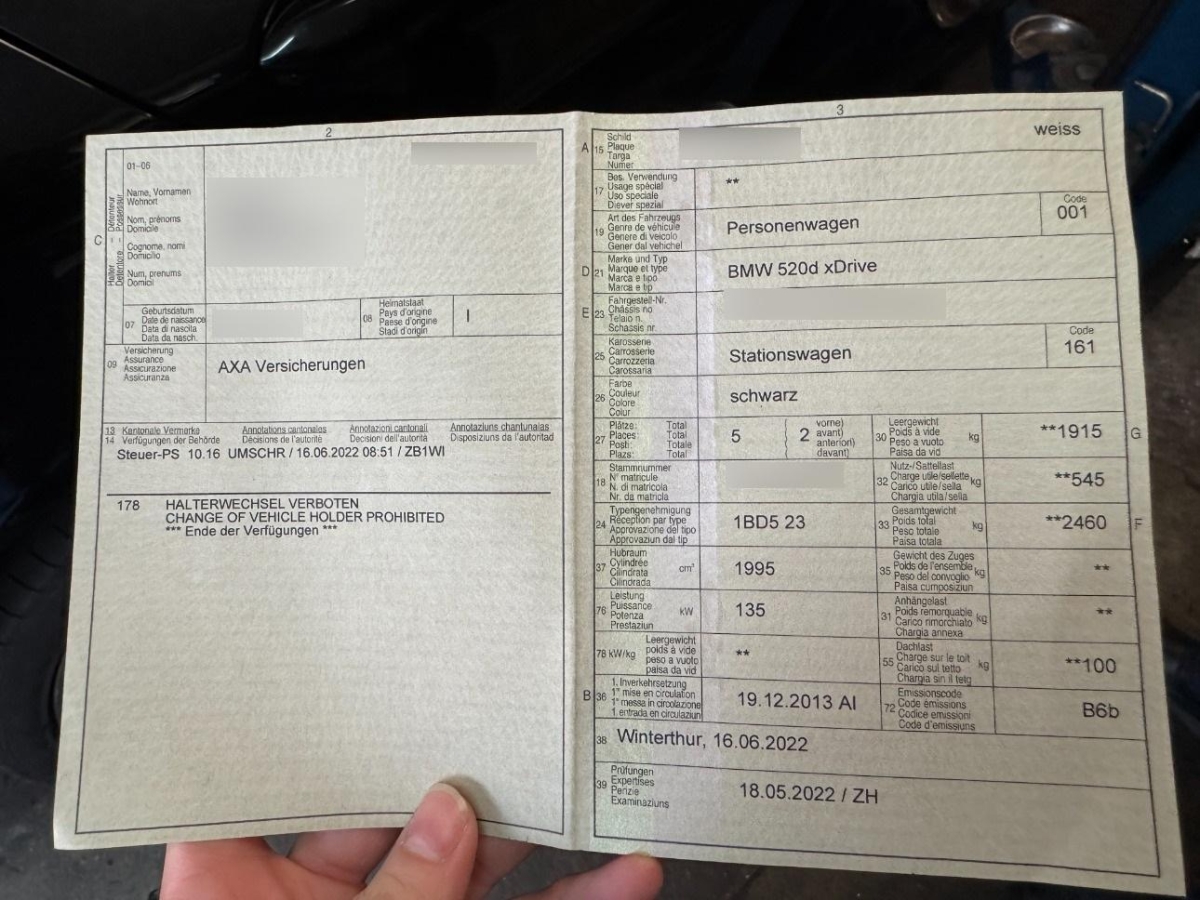 2
01-06
C
Halter Détenteur
Detentore Possessur
Name, Vornamen
Wohnort
Nom, prénoms
Domicile
Cognome, nomi
Domicilio
Num, prenums
Domicil
07
Geburtsdatum
Date de naissance
Data di nascita
Data da nasch.
08
Heimatstaat
Pays d'origine
Paese d'origine
Stadi d'origin
I
09
Versicherung
Assurance
Assicurazione
Assicuranza
AXA Versicherungen
13 Kantonale Vermerke Annotations cantonales Annotazioni cantonali Annotaziuns chantunalas
14 Verfügungen der Behörde Décisions de l'autorité Decisioni dell'autorità Disposiziuns da l'autoritad
Steuer-PS 10.16 UMSCHR / 16.06.2022 08:51 / ZB1WI
178 HALTERWECHSEL VERBOTEN
CHANGE OF VEHICLE HOLDER PROHIBITED
*** Ende der Verfügungen ***
3
A 15
Schild
Plaque
Targa
Numer
weiss
17
Bes. Verwendung
Usage spécial
Uso speciale
Diever spezial
**
19
Art des Fahrzeugs
Genre de véhicule
Genere di veicolo
Gener dal vehichel
Personenwagen
Code
001
D 21
Marke und Typ
Marque et type
Marca e tipo
Marca e tip
BMW 520d xDrive
E 23
Fahrgestell-Nr.
Châssis no
Telaio n.
Schassis nr.
25
Karosserie
Carrosserie
Carrozzeria
Carossaria
Stationswagen
Code
161
26
Farbe
Couleur
Colore
Colur
schwarz
27
Plätze: Total
Places: Total
Posti: Totale
Plazs: Total
5
2
vorne)
avant)
anteriori)
davant)
30
Leergewicht
Poids à vide
Peso a vuoto
Paisa da vid
kg
**1915
G
18
Stammnummer
N° matricule
N. di matricola
Nr. da matricla
32
Nutz-/Sattellast
Charge utile/sellette
Carico utile/sella
Chargia utila/sella
kg
**545
24
Typengenehmigung
Réception par type
Approvazione del tipo
Approvaziun dal tip
1BD5 23
33
Gesamtgewicht
Poids total
Peso totale
Paisa totala
kg
**2460
F
37
Hubraum
Cylindrée
Cilindrata
Cilindrada
cm³
1995
35
Gewicht des Zuges
Poids de l'ensemble
Peso del convoglio
Paisa cumposiziun
kg
**
76
Leistung
Puissance
Potenza
Prestaziun
kW
135
31
Anhängelast
Poids remorquable
Carico rimorchiato
Chargia annexa
kg
**
78 kW/kg
Leergewicht
poids à vide
peso a vuoto
paisa da vid
**
55
Dachlast
Charge sur le toit
Carico sul tetto
Chargia sin il tetg
kg
**100
B 36
1. Inverkehrsetzung
1re mise en circulation
1a messa in circolazione
1. entrada en circulaziun
19.12.2013 AI
72
Emissionscode
Code émissions
Codice emissioni
Code d'emissiuns
B6b
38 Winterthur, 16.06.2022
39
Prüfungen
Expertises
Perizie
Examinaziuns
18.05.2022 / ZH